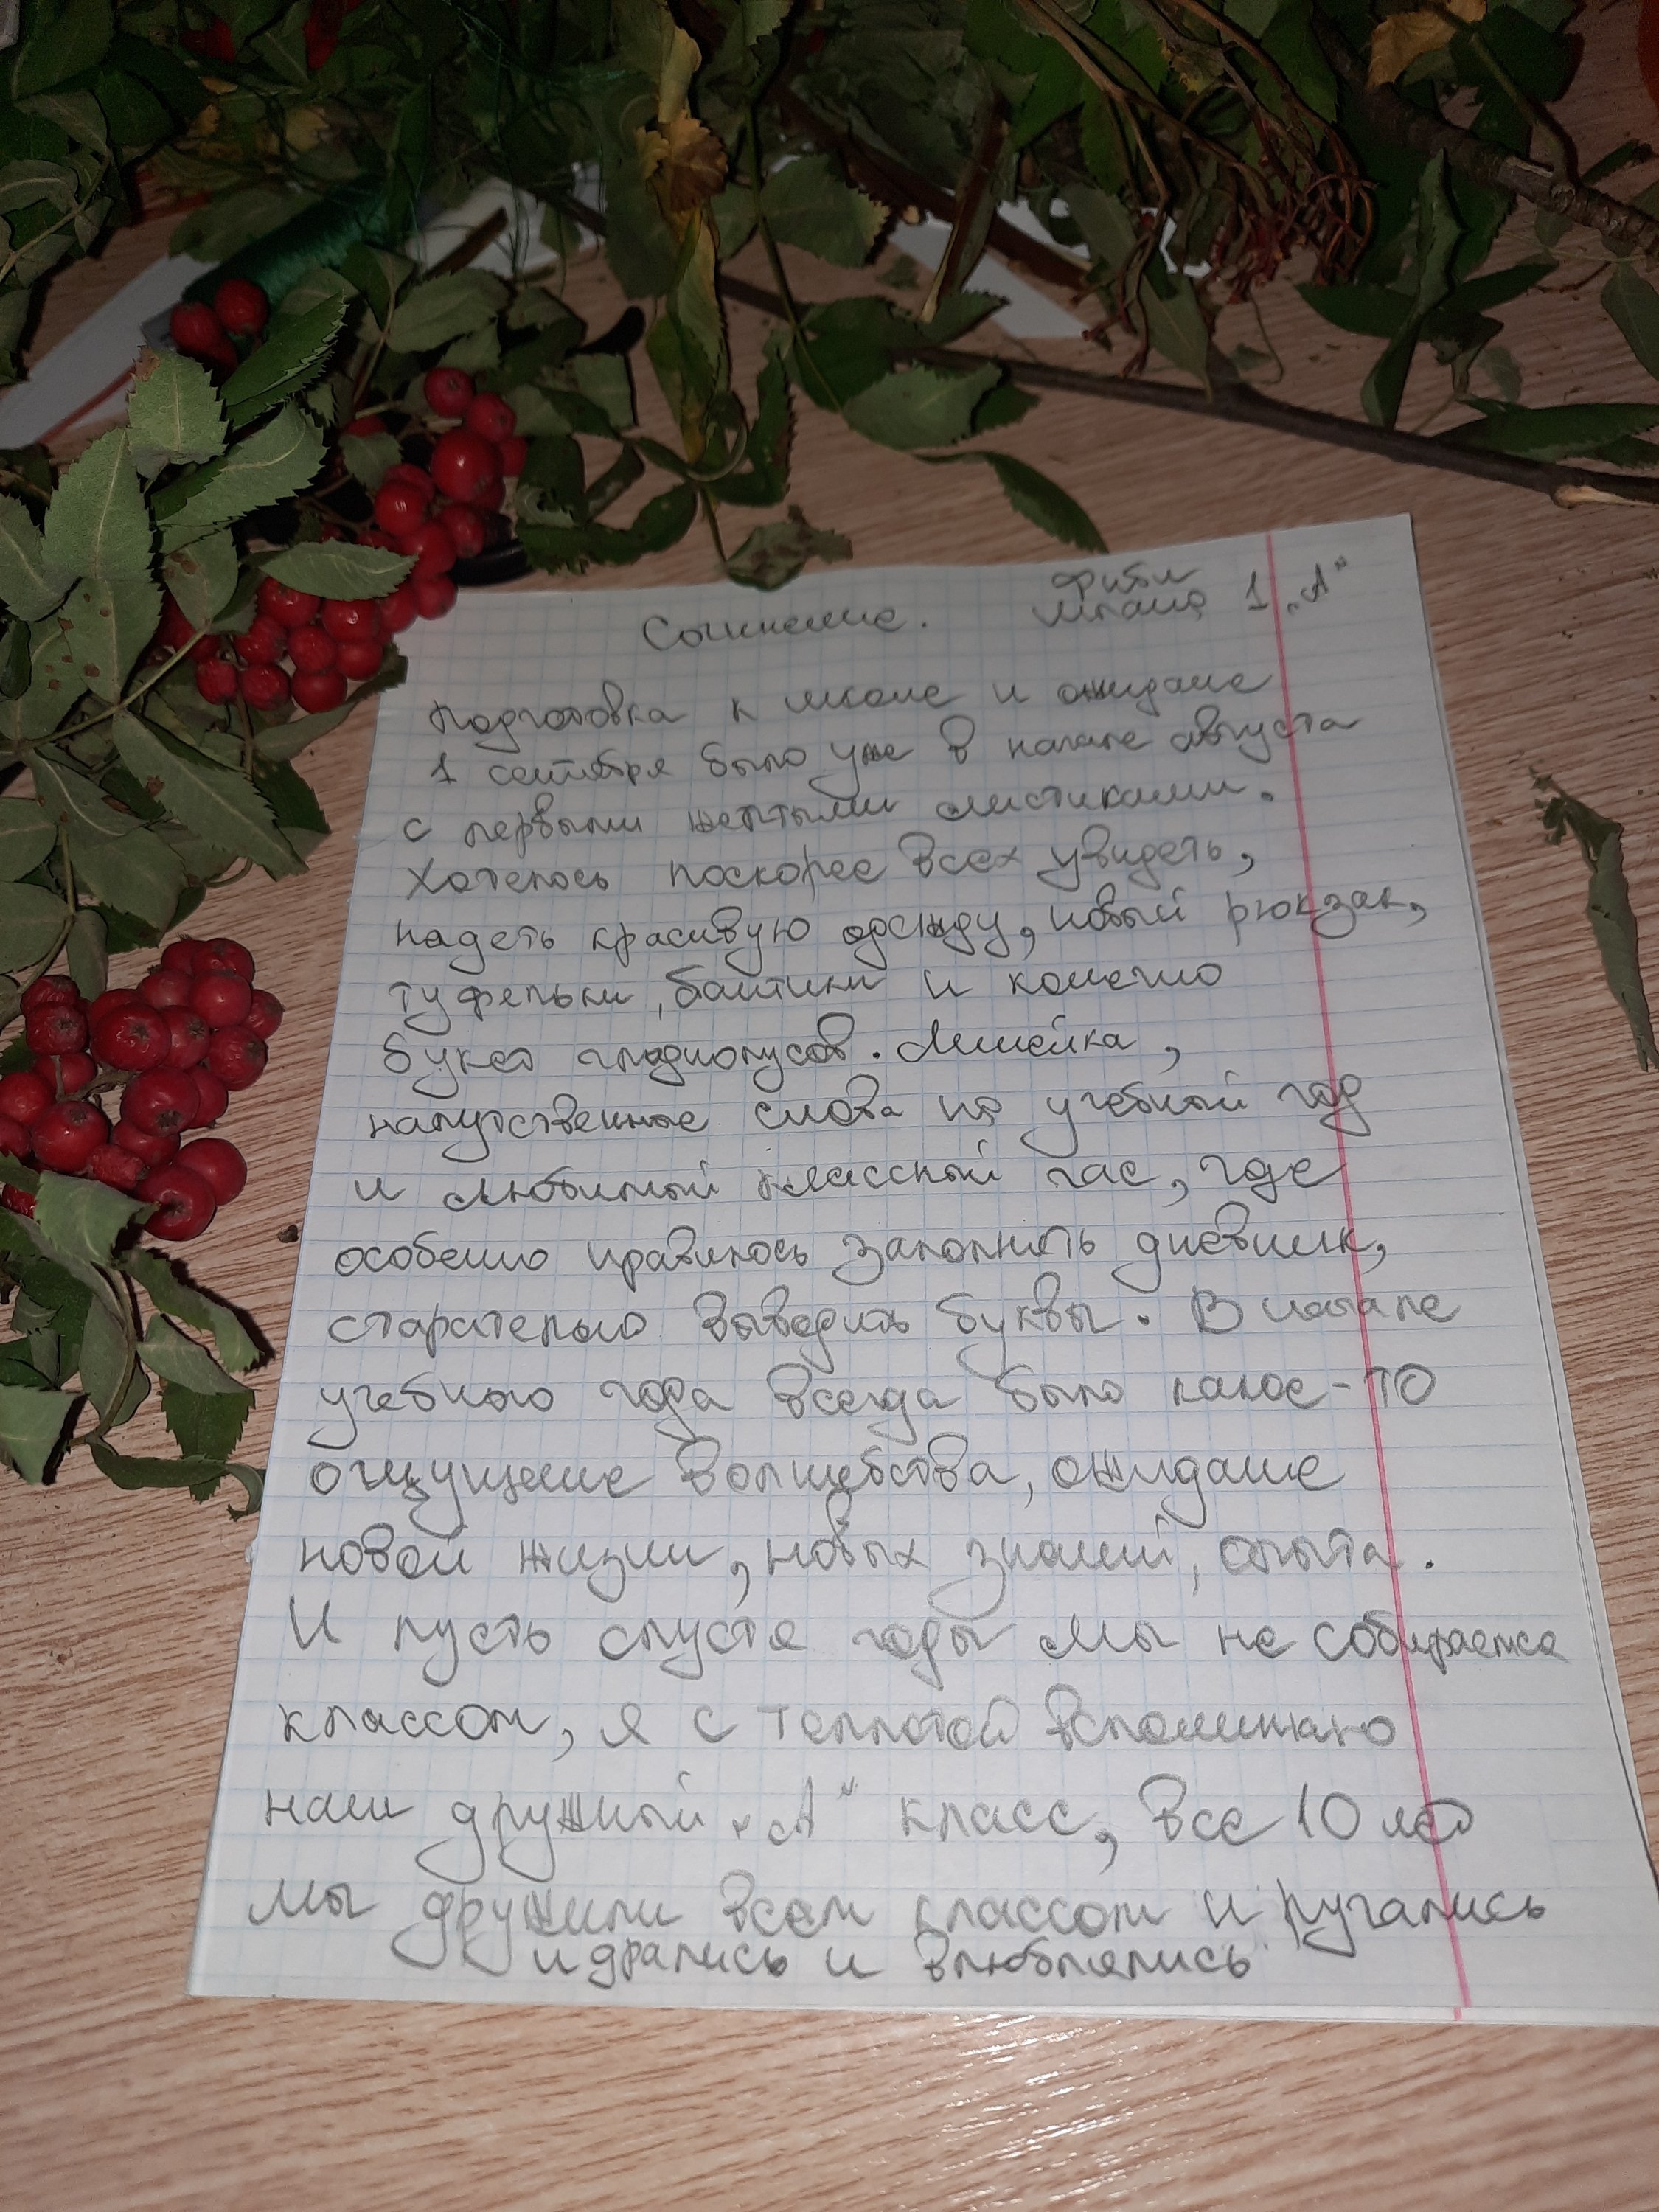 Сочинение. Фиби
Милана 1 „А"
Подготовка к школе и ожидание
1 сентября было уже в начале августа
с первыми желтыми листиками.
Хотелось поскорее всех увидеть,
надеть красивую одежду, новый рюкзак,
туфельки, бантики и конечно
букет гладиолусов. Линейка,
напутственные слова на учебный год
и любимый классный час, где
особенно нравилось заполнять дневник,
старательно выводить буквы. В начале
учебного года всегда было какое-то
ощущение волшебства, ожидание
новой жизни, новых знаний, опыта.
И пусть спустя годы мы не собираемся
классом, я с теплотой вспоминаю
наш дружный „А" класс, все 10 лет
мы дружили всем классом и ругались
и дрались и влюблялись